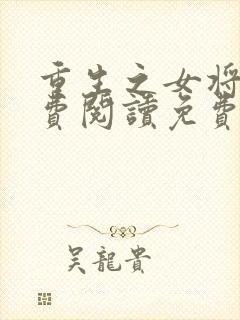 重生之女將
費閱讀免費
吳龍貴